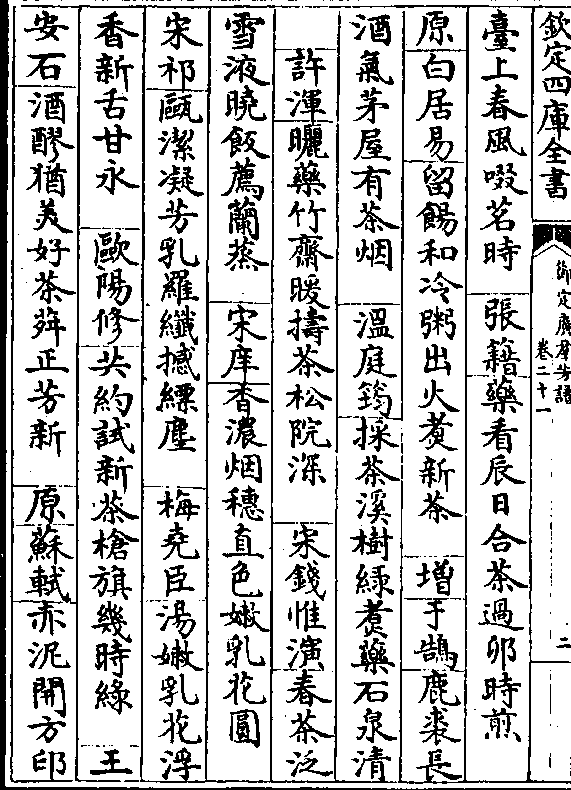 欽定四庫全書
御定廣羣芳譜
卷二十一
二
臺上春風啜茗時　張籍藥看辰日合茶過卯時煎
原白居易留餳和冷粥出火煑新茶　增于鵠鹿裘長
酒氣茅屋有茶烟　溫庭筠採茶溪樹綠煑藥石泉清
許渾曬藥竹齋暖擣茶松院深　宋錢惟演春茶泛
雪液曉飯薦蘭蒸　宋庠香濃烟穗直色嫩乳花圓
宋祁甌潔凝芳乳羅纖撼縹塵　梅堯臣湯嫩乳花浮
香新舌甘永　歐陽修共約試新茶槍旗幾時綠　王
安石酒醪猶美好茶荈正芳新　原蘇軾赤泥開方印